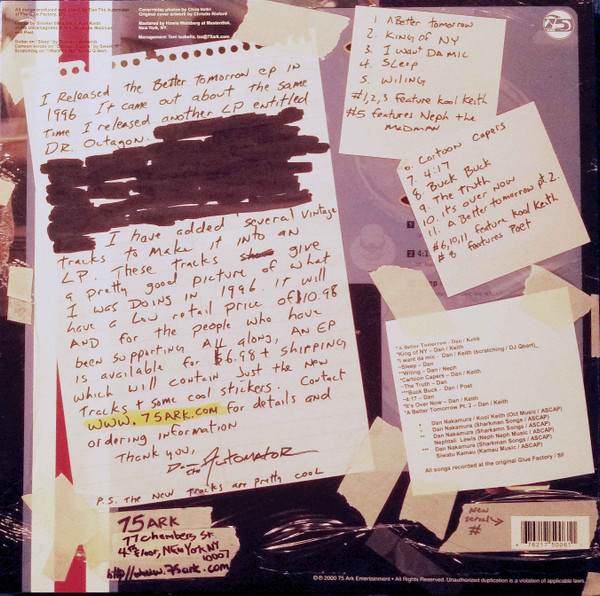 All songs produced and
The Glue Factory, SF
Cover/slides photos by Chris
Original cover artwork by Christie Rixford
Mastered by Howie Weinberg at Masterdisk,
New York, NY.
Management: Toni Isabella, tas@75ark.com
75
I Released the Better Tomorrow EP in
1996 It came out about the same
time I released another LP entitled
DR. Octagon.
I have added several vintage
tracks to make it into an
LP. These tracks give
a pretty good picture of what
I was doing in 1996. It will
have a low retail price of $10.98
AND for the people who have
been supporting all along, AN EP
is available for $6.98 + shipping
which will contain just the new
tracks + some cool stickers. Contact
www.75ARK.com for details and
ordering information
Thank you,
Dan the Automator
P.S. The new tracks are pretty cool
1 A Better tomorrow
2. King of NY
3. I want Da mic
4. Sleep
5. Wiling
#1,2,3 Feature Kool Keith
#5 features Neph the
madman
6. Cartoon Capers
7. 4:17
8 Buck Buck
9. The truth
10. it's over now
11. A Better tomorrow pt. 2.
#6,10,11 feature Kool Keith
#8 features Poet
*A Better Tomorrow - Dan / Keith
*King of NY – Dan / Keith
*I want da mic - Dan / Keith (scratching / DJ Qbert)
-Sleep - Dan
**Wiling – Dan / Neph
*Cartoon Capers – Dan / Keith
-The Truth – Dan
***Buck Buck - Dan / Poet
- 4:17 – Dan
*It's Over Now – Dan / Keith
*A Better Tomorrow Pt. 2 – Dan / Keith
* Dan Nakamura / Kool Keith (Oct Music / ASCAP)
- Dan Nakamura (Sharkman Songs / ASCAP)
** Dan Nakamura (Sharkman Songs / ASCAP)
Nephtali. Lewis (Neph Neph Music / ASCAP)
*** Dan Nakamura (Sharkman Songs / ASCAP)
Siwatu Kamau (Kamau Music / ASCAP)
All songs recorded at the original Glue Factory / SF
75 ARK
77 Chambers St.
4th Floor, New York NY
10007
http://www.75ark.com
New
serial →
#
℗© 2000 75 Ark Entertainment • All Rights Reserved. Unauthorized duplication is a violation of applicable laws.